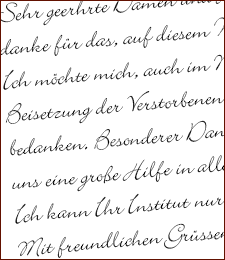 Sehr geehrte Damen und
danke für das, auf diesem
Ich möchte mich, auch im
Beisetzung der Verstorbenen
bedanken. Besonderer Dan
uns eine große Hilfe in alle
Ich kann Ihr Institut nur
Mit freundlichen Grüssen